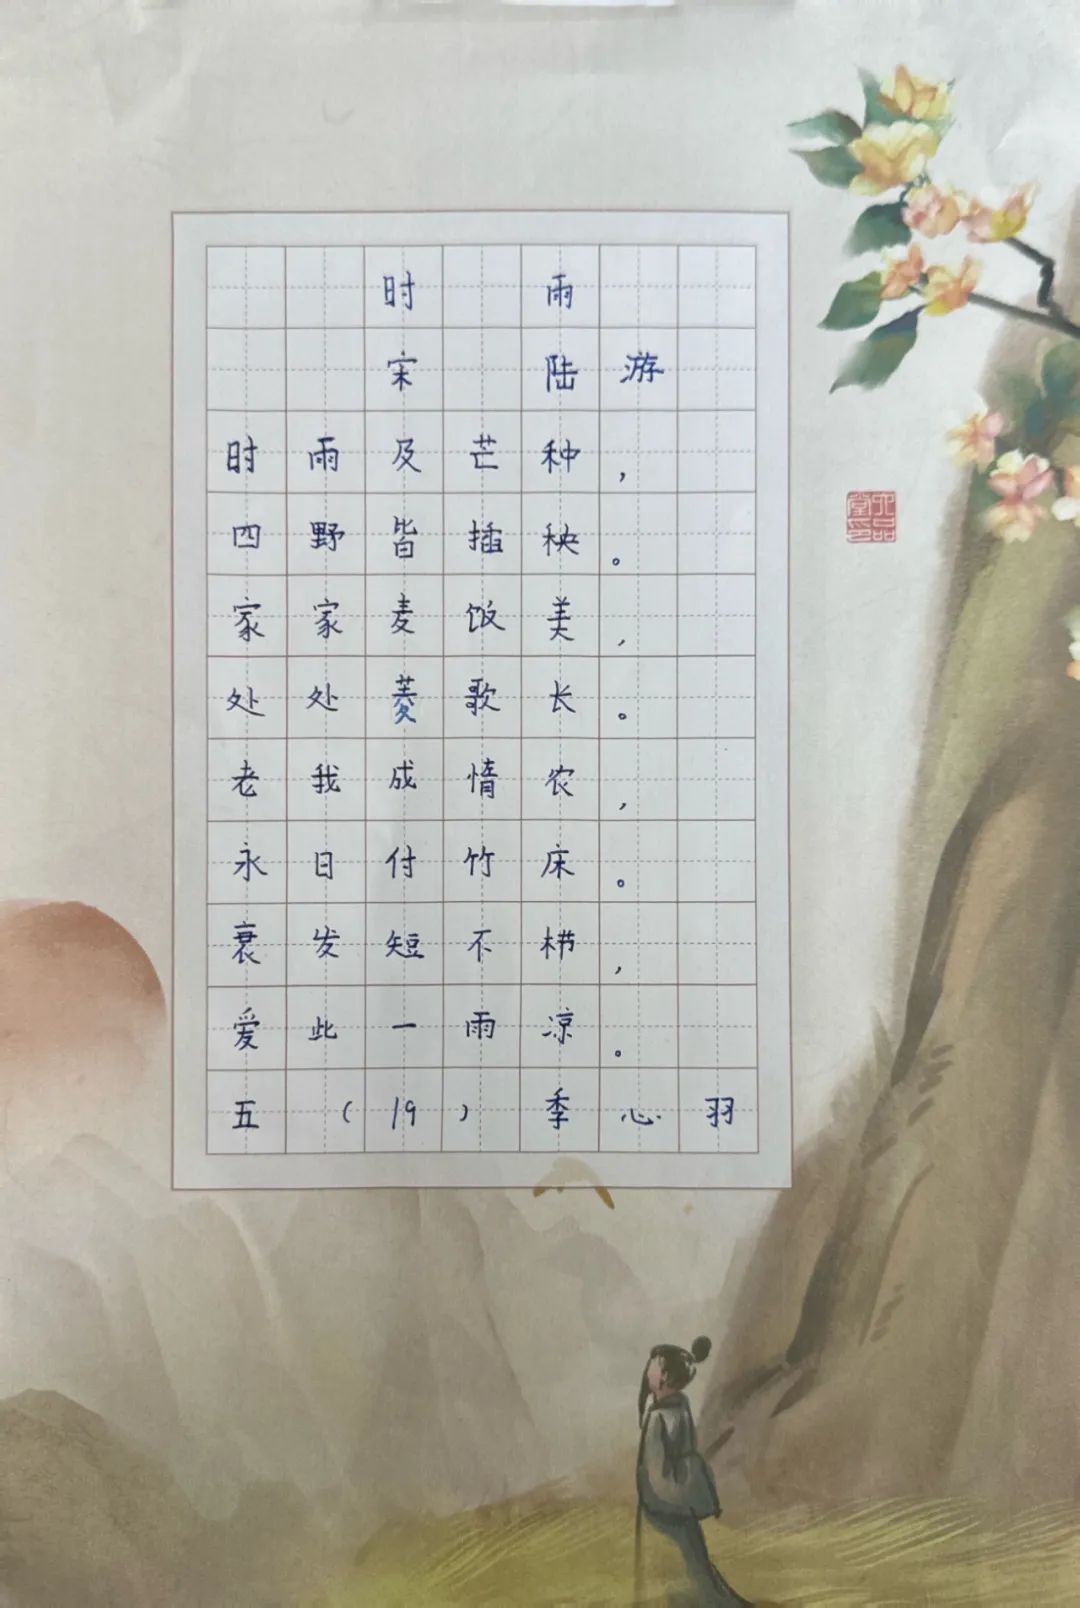 时雨
宋 陆游
时雨及芒种，
四野皆插秧。
家家麦饭美，
处处菱歌长。
老我成惰农，
永日付竹床。
衰发短不栉，
爱此一雨凉。
五（19）季心羽